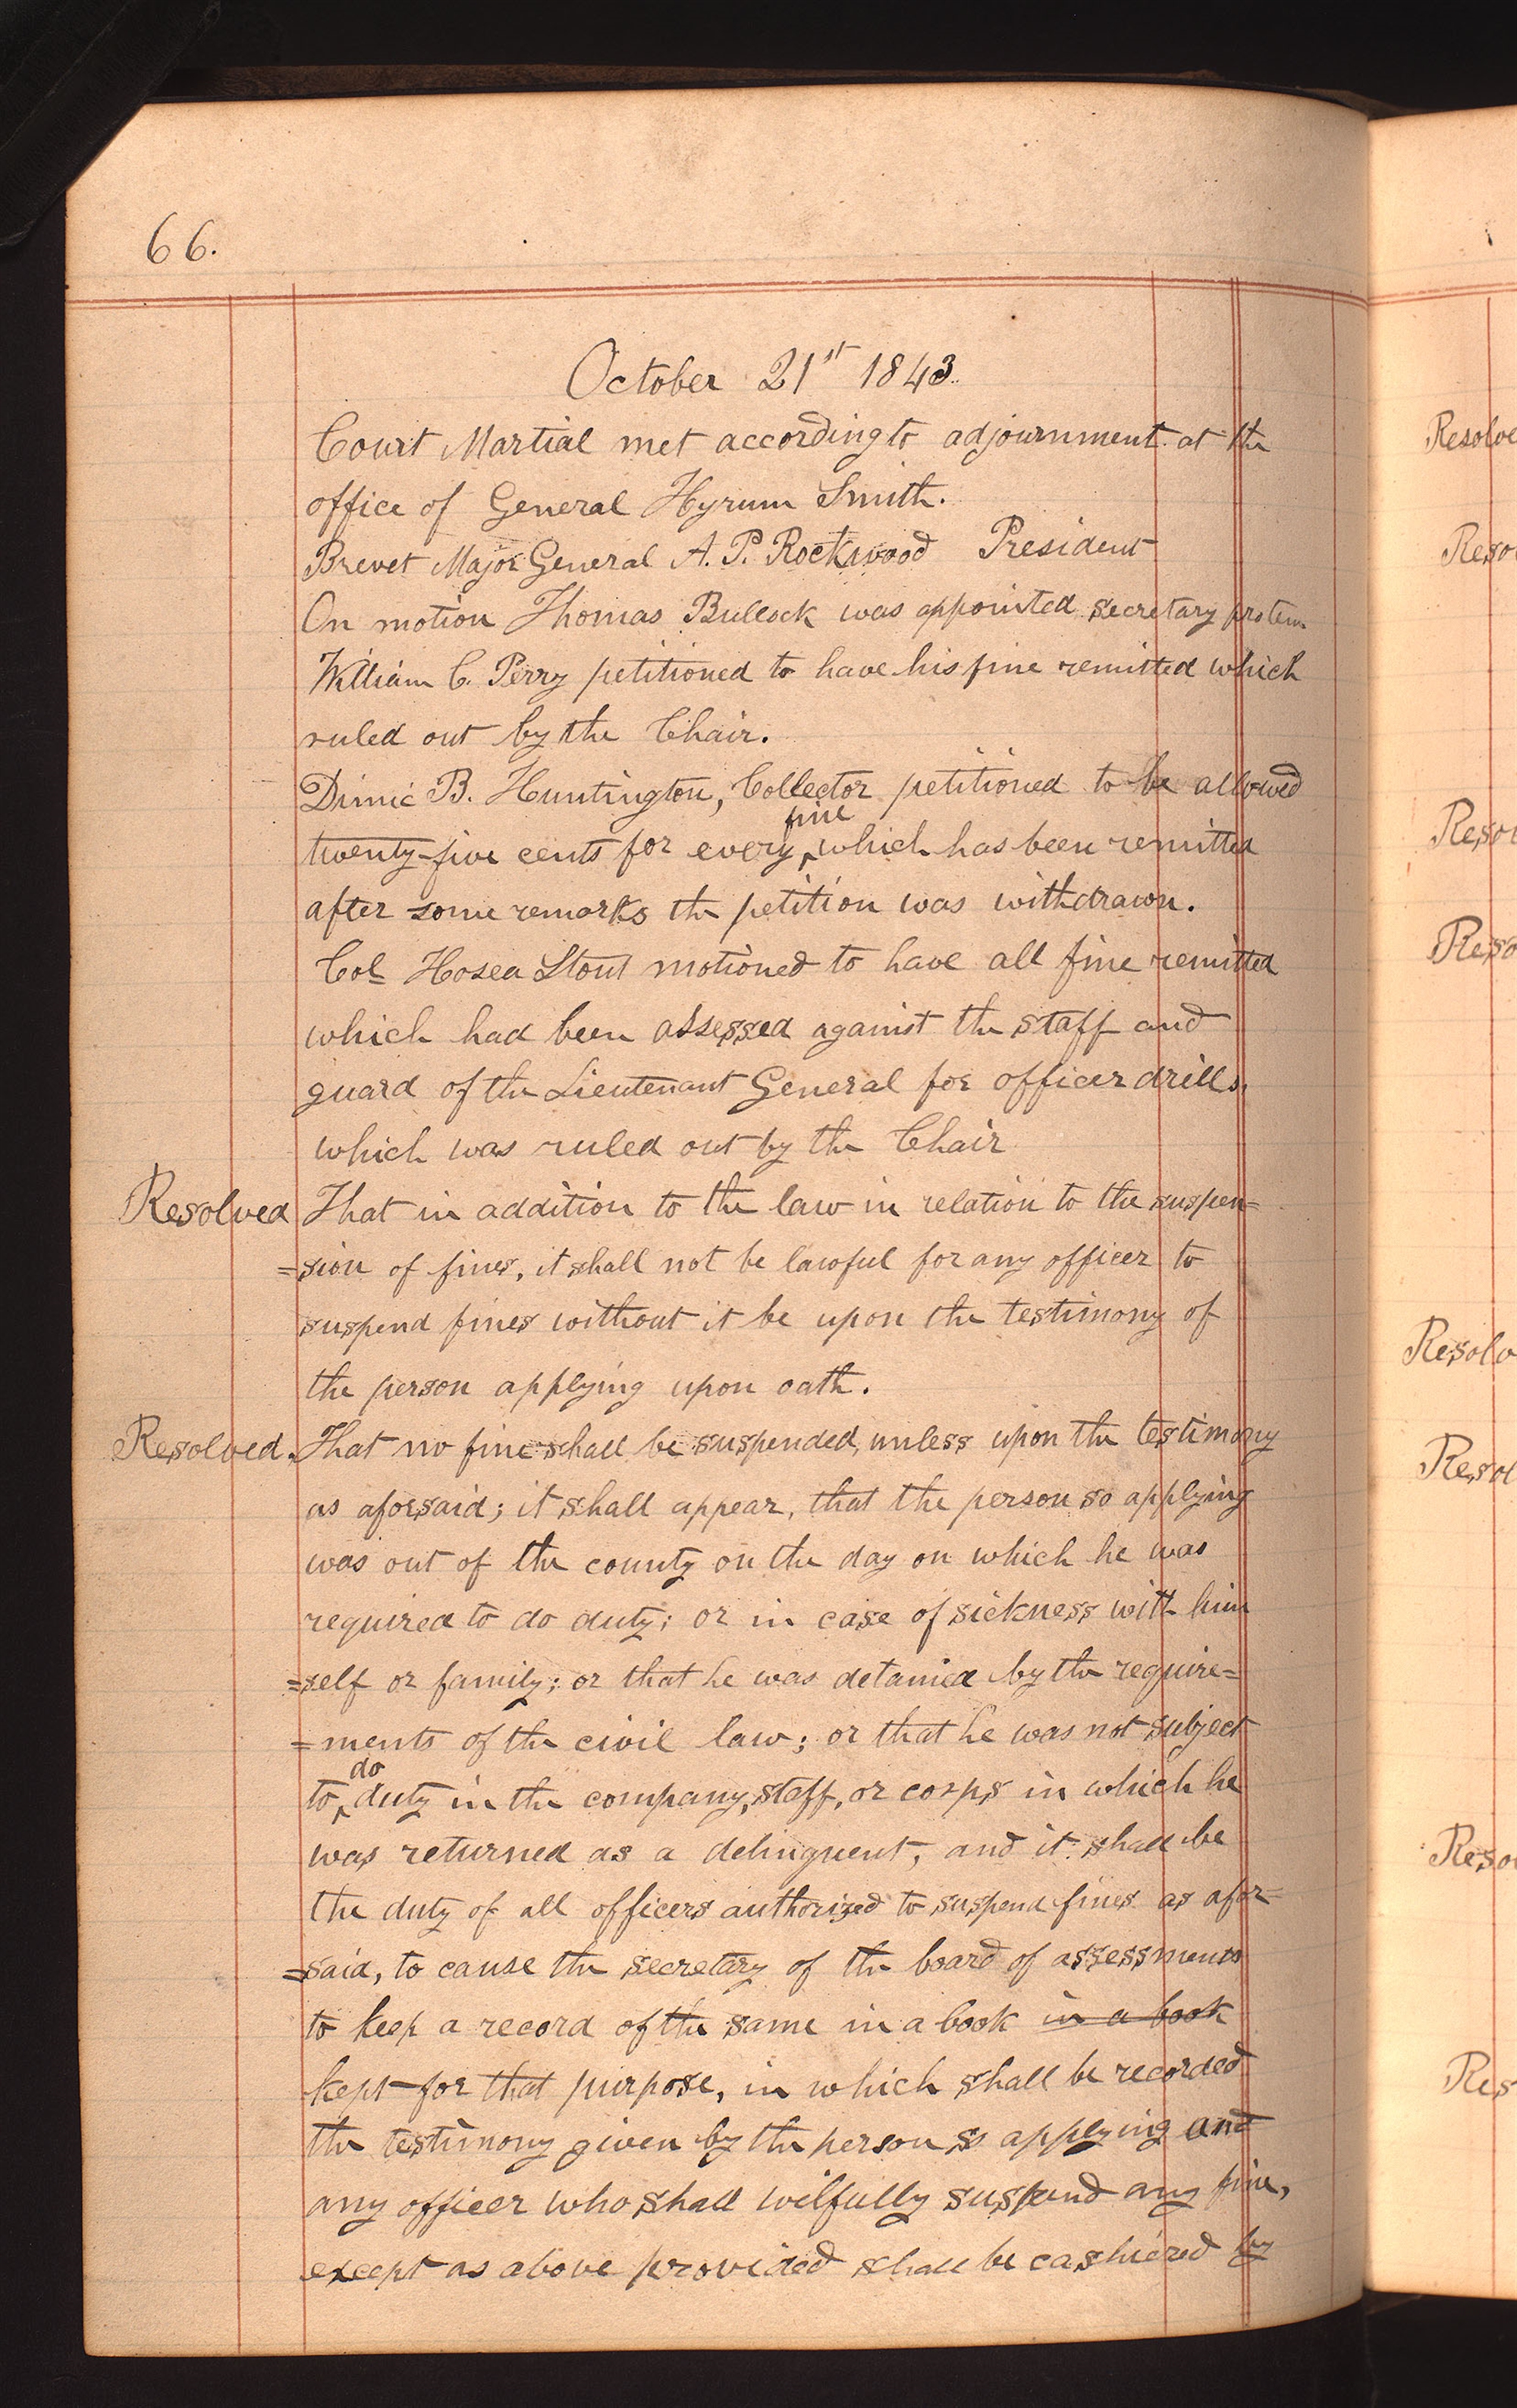 66.
October 21st 1843.
Court Martial met according to adjournment at the
office of General Hyrum Smith.
Brevet Major General A. P. Rockwood President
On motion Thomas Bullock was appointed secretary protem
William C. Perry petitioned to have his fine remitted which
ruled out by the Chair.
Dimic B. Huntington, Collector petitioned to be allowed
fine
twenty-five cents for every ‸ which has been remitted
after some remarks the petition was withdrawn.
Col Hosea Stout motioned to have all fine remitted
which had been assessed against the staff and
guard of the Lieutenant General for officer drills,
which was ruled out by the Chair
Resolved That in addition to the law in relation to the suspen=
=sion of fines, it shall not be lawful for any officer to
suspend fines without it be upon the testimony of
the person applying upon oath.
Resolved. That no fine shall be suspended, unless upon the testimony
as aforsaid; it shall appear, that the person so applying
was out of the county on the day on which he was
required to do duty; or in case of sickness with him
=self or family; or that he was detained by the require=
=ments of the civil law; or that he was not subject
do
to ‸ duty in the company, staff, or corps in which he
was returned as a delinquent, and it shall be
the duty of all officers authorized to suspend fines as afor=
=said, to cause the secretary of the board of assessments
to keep a record of the same in a book in a book
kept for that purpose, in which shall be recorded
the testimony given by the person so applying and
any officer who shall wilfully suspend any fine,
except as above provided shall be cashiered by
Resolve
Reso
Resol
Reso
Resolv
Resol
Resol
Res